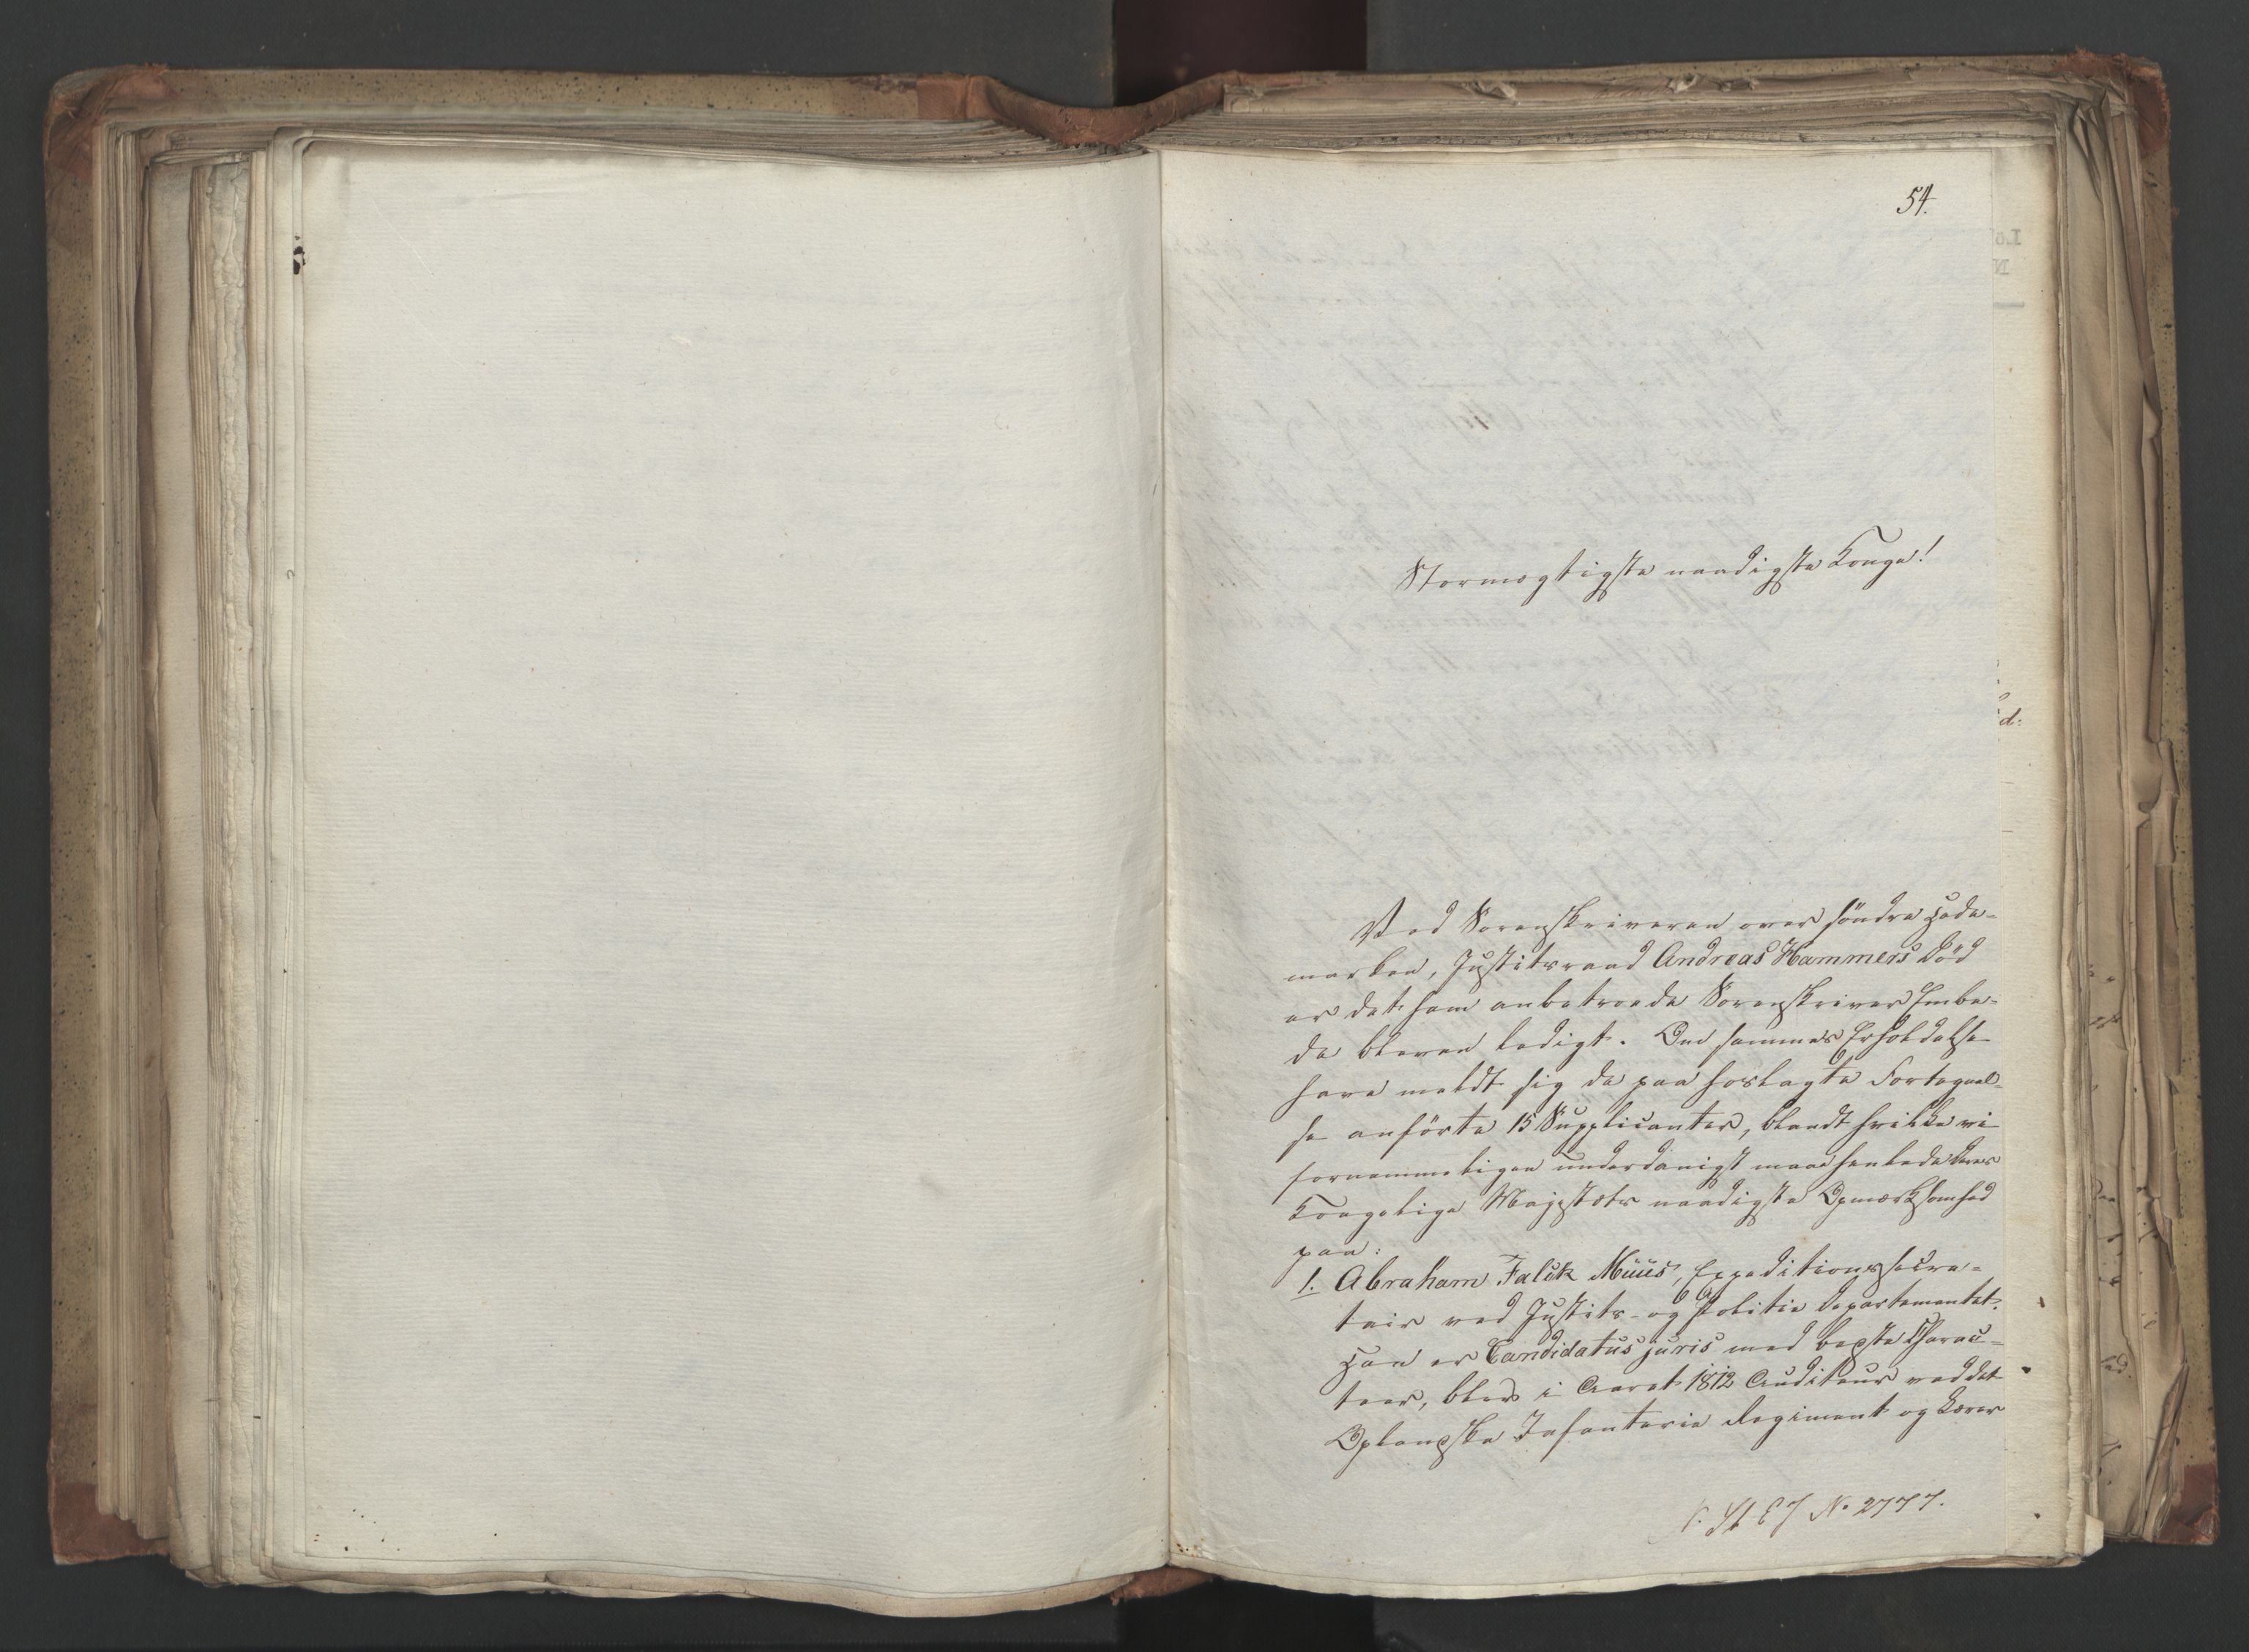 54.
Stormægtigste naadigste Konge!
Ved Sorenskriveren over söndre Hede-
marken, Justitsraad Andreas Hammers Död
er det ham anbetroede Sorenskriver Embe-
de bleven ledigt. Om sammes Erholdelse
have meldt sig de paa hoslagte Fortegnel-
se anförte 15 Supplicanter, blandt hvilke vi
fornemmeligen underdanigst maae henlede Deres
Kongelige Majestæts naadigste Opmærksomhed
paa:
1. Abraham Falck Müüs, Expeditionssecre-
tair ved Justits- og Politie Departementet.
Han er Candidatus juris med bedste Charac-
teer, blev i Aaret 1812 Auditeur ved det
Oplandske Infanterie Regiment og
N. 2777.